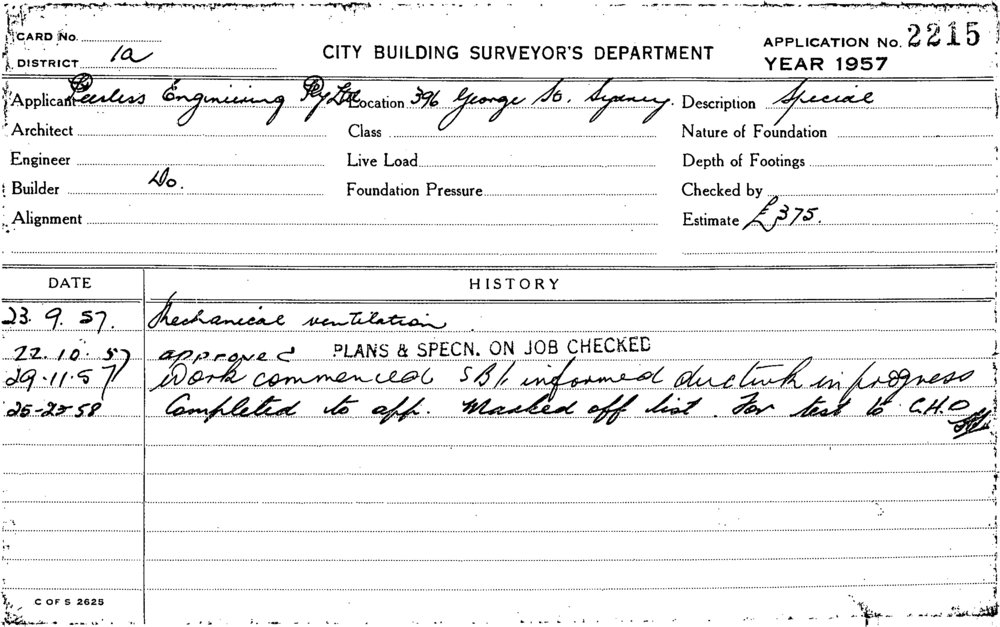 CARD No.
DISTRICT 1a
CITY BUILDING SURVEYOR'S DEPARTMENT
APPLICATION No. 2215
YEAR 1957
Applicant Peerless Engineering Pty Ltd Location 396 George St. Sydney. Description Special
Architect Class Nature of Foundation
Engineer Live Load Depth of Footings
Builder Do. Foundation Pressure Checked by
Alignment Estimate £375.
DATE HISTORY
23. 9. 57. Mechanical ventilation
22. 10. 57 approved PLANS & SPECN. ON JOB CHECKED
29-11-57 Work commenced informed in progress
25-2-58 Completed to app. Marked off list. For test to C.H.O
C OF S 2625